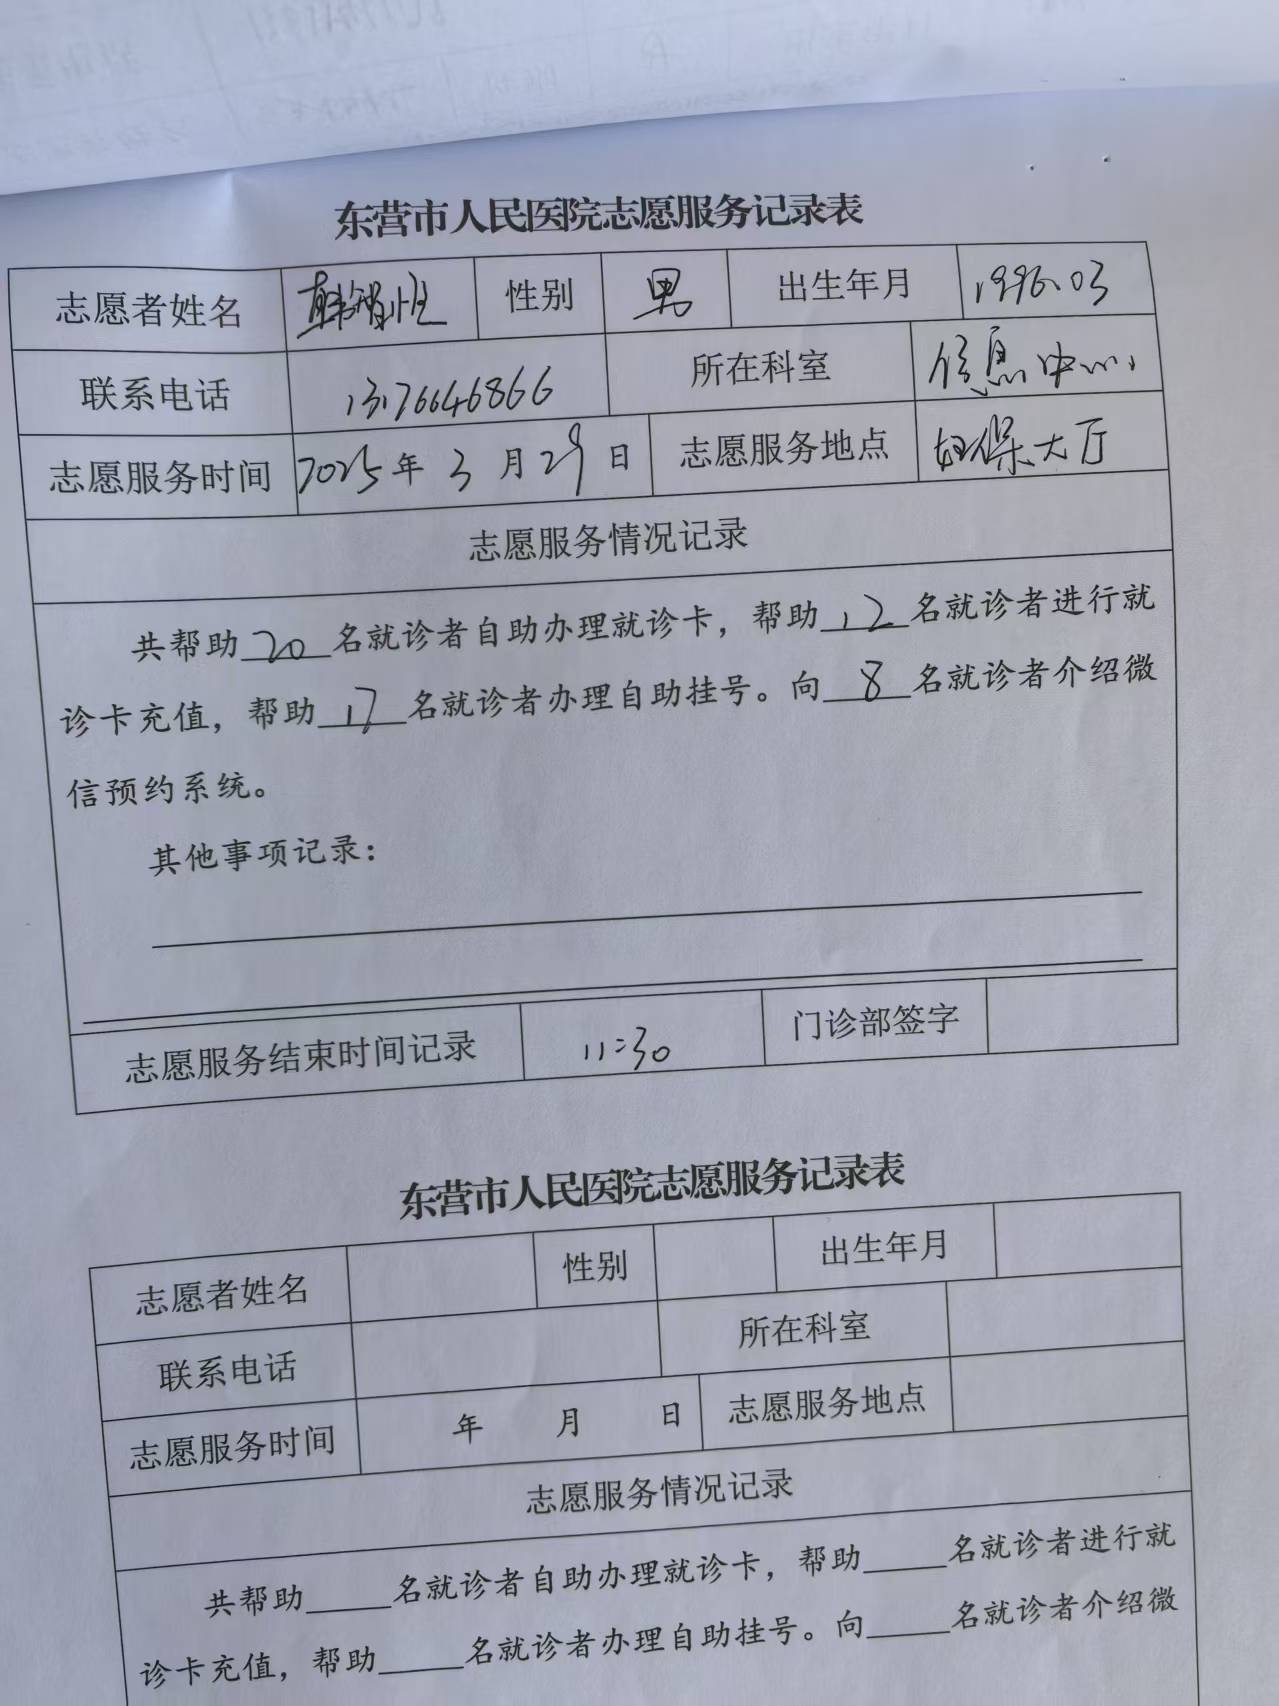 东营市人民医院志愿服务记录表
志愿者姓名 韩智恒 性别 男 出生年月 1996.03
联系电话 13176646866 所在科室 信息中心
志愿服务时间 2025年3月29日 志愿服务地点 妇保大厅
志愿服务情况记录
共帮助20名就诊者自助办理就诊卡，帮助12名就诊者进行就
诊卡充值，帮助17名就诊者办理自助挂号。向8名就诊者介绍微
信预约系统。
其他事项记录：
志愿服务结束时间记录 11:30 门诊部签字
东营市人民医院志愿服务记录表
志愿者姓名 性别 出生年月
联系电话 所在科室
志愿服务时间 年 月 日 志愿服务地点
志愿服务情况记录
共帮助_____名就诊者自助办理就诊卡，帮助_____名就诊者进行就
诊卡充值，帮助_____名就诊者办理自助挂号。向_____名就诊者介绍微